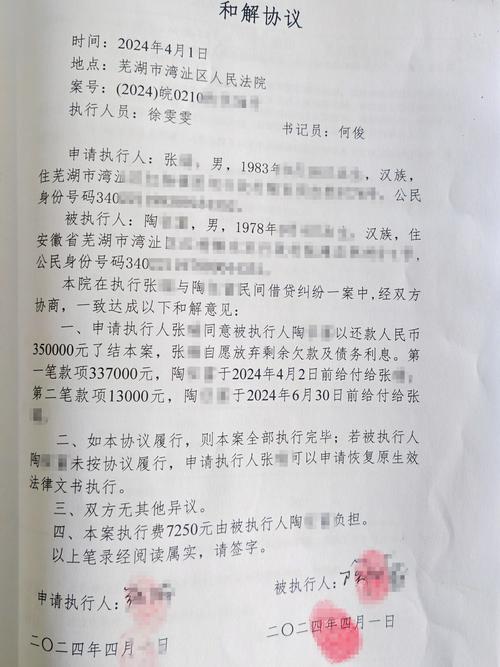 和解协议
时间：2024年4月1日
地点：芜湖市湾沚区人民法院
案号：(2024)皖0210
执行人员：徐雯雯
书记员：何俊
申请执行人：张，男，1983，汉族，
住芜湖市湾沚。公民
身份号码340
被执行人：陶，男，1978年，汉族，住
安徽省芜湖市湾沚区，
公民身份号码340
本院在执行张与陶民间借贷纠纷一案中，经双方
协商，一致达成以下和解意见：
一、申请执行人张同意被执行人陶以还款人民币
350000元了结本案，张自愿放弃剩余欠款及债务利息。第
一笔款项337000元，陶于2024年4月2日前给付给张；
第二笔款项13000元，陶于2024年6月30日前给付给张
。
二、如本协议履行，则本案全部执行完毕；若被执行人
陶未按协议履行，申请执行人张可以申请恢复原生效
法律文书执行。
三、双方无其他异议。
四、本案执行费7250元由被执行人陶负担。
以上笔录经阅读属实，请签字。
申请执行人：
被执行人：
二〇二四年四月一日
二〇二四年四月一日